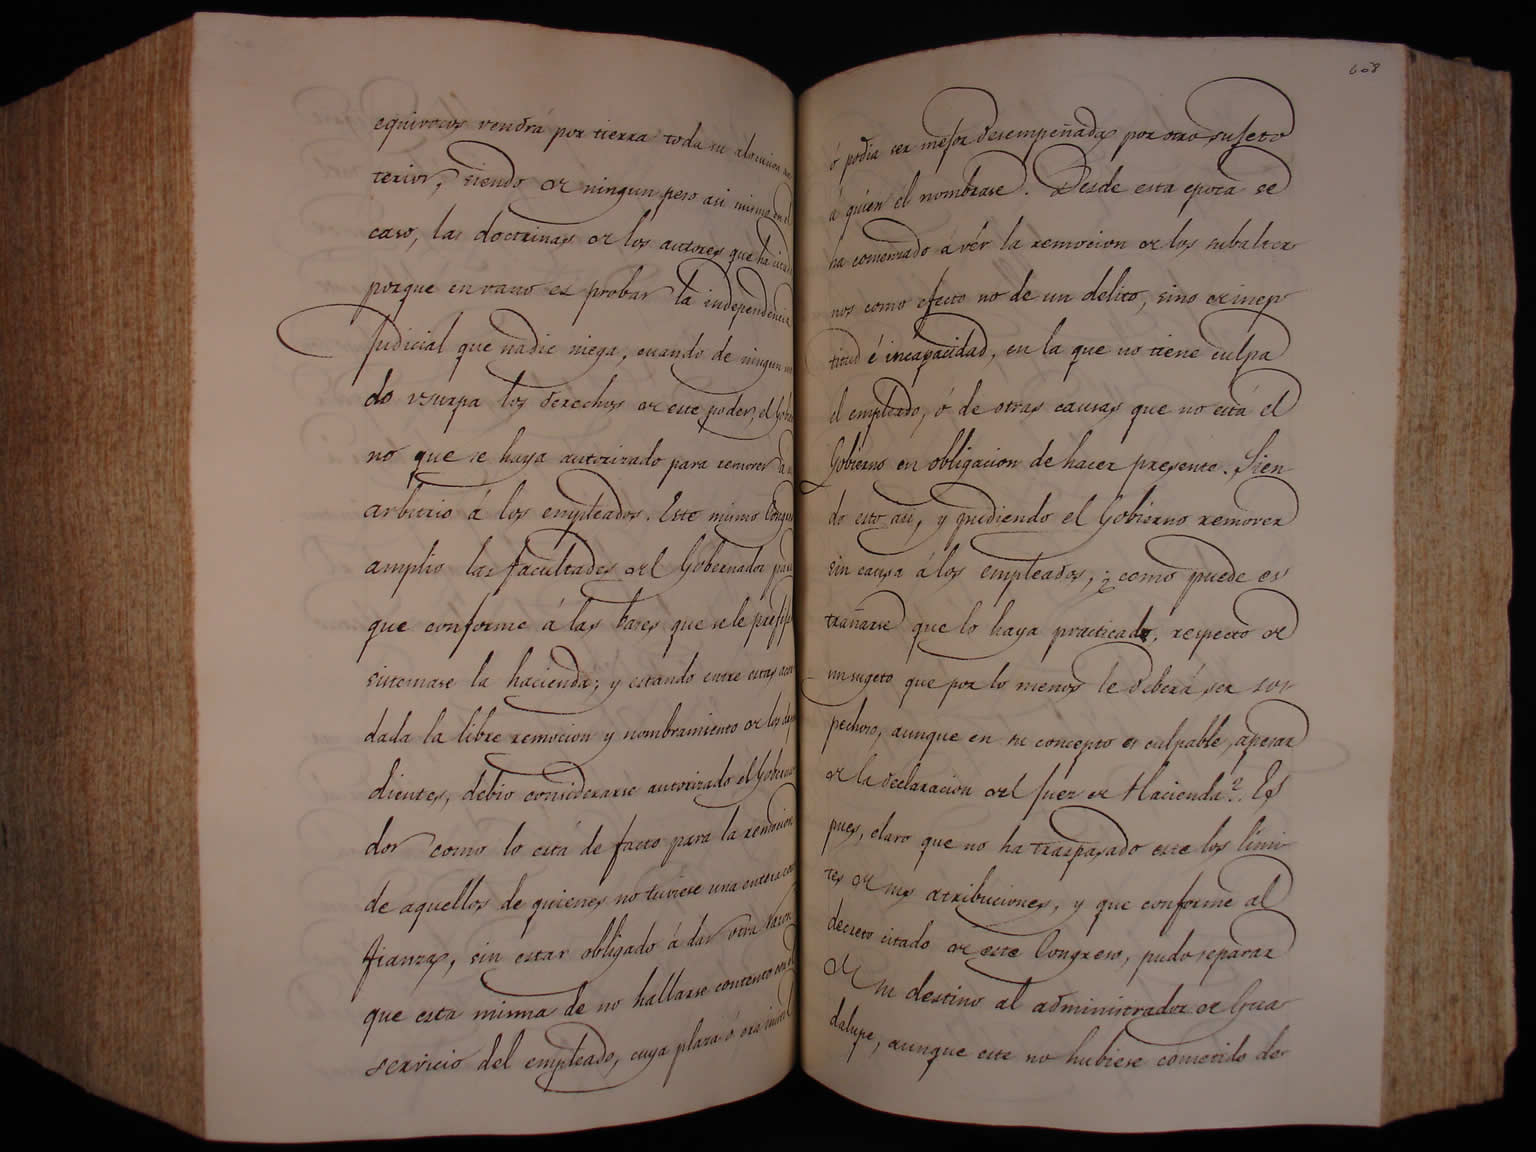 equivocos vendrá por tierra toda su alocucion an
terior, siendo de ningun peso asi mismo en el
caso, las doctrinas de los autores que ha citado
porque en vano es probar la independencia
Judicial que nadie niega, cuando de ningun mo
do usurpa los derechos de este poder, el Gobier
no que se haya autorizado para remover á su
arbitrio á los empleados. Este mismo Congreso
amplio las facultades del Gobernador para
que conforme á las bases que se le prefijó
sistemase la hacienda; y estando entre estas acor
dada la libre remocion y nombramiento de los depen
dientes, debió considerarse autorizado el Goberna
dor como lo está de facto para la remocion
de aquellos de quienes no tuviese una entera con
fianza, sin estar obligado á dar otra razon
que esta misma de no hallarse contento con el
servicio del empleado, cuya plaza ó era inutil
608
ó podia ser mejor desempeñada por otro sujeto
á quien él nombrase. Desde esta epoca se
ha comenzado á vér la remocion de los subalter
nos como efecto no de un delito, sino de inep
titud é incapacidad, en la que no tiene culpa
el empleado, ó de otras causas que no está el
Gobierno en obligacion de hacer presente. Sien
do esto asi, y pudiendo el Gobierno remover
sin causa á los empleados, ¿como puede es
trañarse que lo haya practicado, respecto de
un sugeto que por lo menos le deberá ser sos
pechoso, aunque en su concepto es culpable, apesar
de la declaracion del Juez de Hacienda?. Es
pues, claro que no ha traspasado este los limi
tes de sus atribuciones, y que conforme al
decreto citado de este Congreso, pudo separar
de su destino al administrador de Gua
dalupe, aunque este no hubiese cometido de